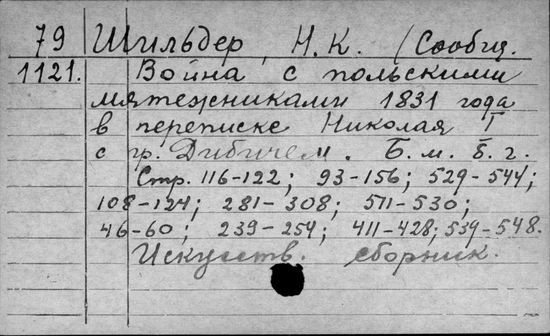 79 Шильдер, Н.К. (Сообщ.
1121. Война с польскими
мятежниками 1831 года
в переписке Николая I
с гр. Дибичем. Б.м. Б.г.
Стр. 116-122; 93-156; 529-544;
108-124; 281-308; 511-530;
46-60; 239-254; 411-428; 539-548.
Искусств. сборник.